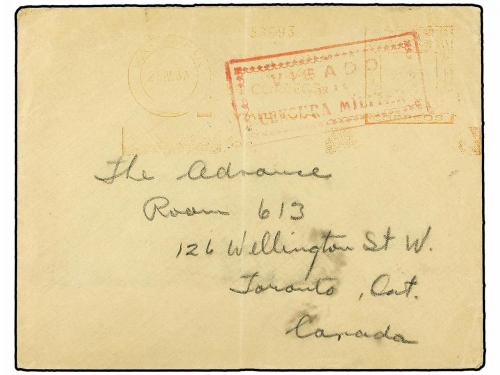 53693
VISADO
CENSURA MILITAR
The Advance
Room 613
126 Wellington St W.
Toronto, Ont.
Canada